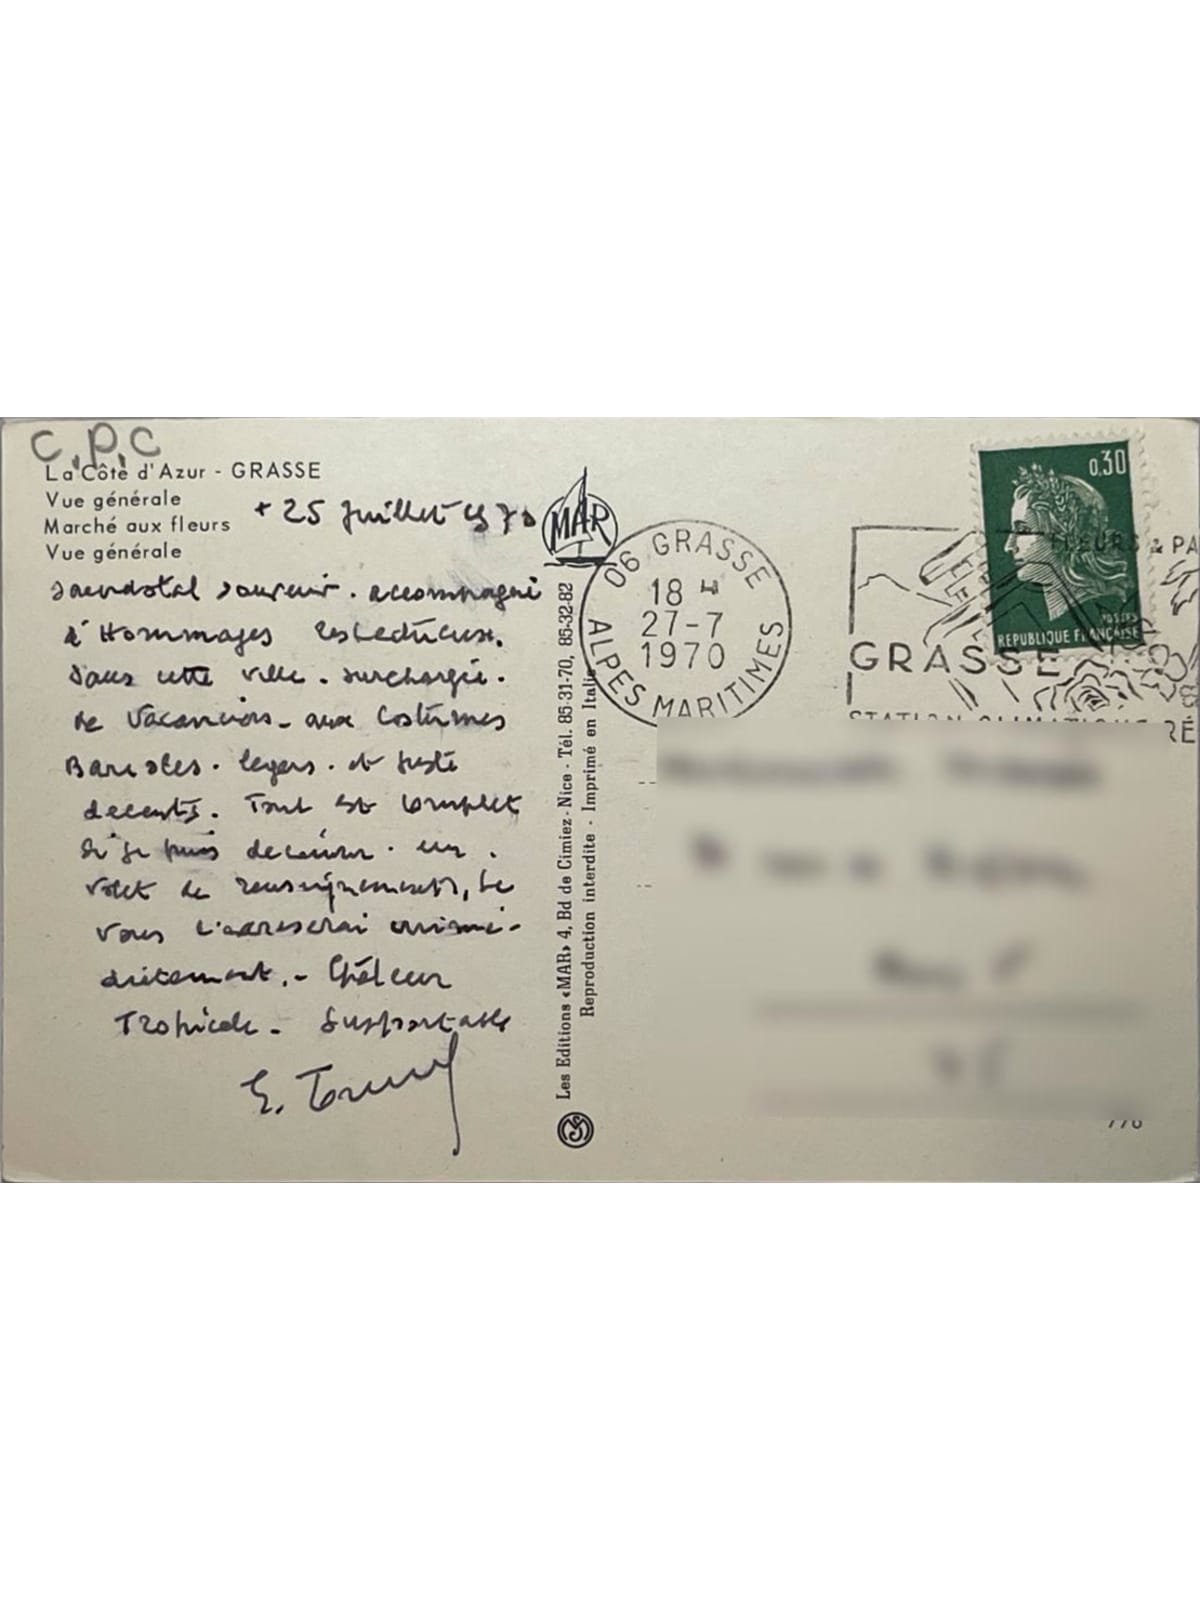 C.P.C
La Côte d'Azur - GRASSE
Vue générale
Marché aux fleurs
Vue générale
+ 25 Juillet 1970
Sacerdotal souvenir. accompagné
d'Hommages respectueux.
Dans cette ville. surchargée.
de vacanciers - aux costumes
légers. et juste
décents. Tout est complet
Si je puis découvrir. un.
volet de renseignements, je
vous l'adresserai immé-
diatement. - Chaleur
Tropicale - Supportable
E.
MAR
Les Editions «MAR» 4, Bd de Cimiez - Nice - Tél. 85-31-70, 85-32-82
Reproduction interdite - Imprimé en Italie
06 GRASSE
18 H
27-7
1970
ALPES MARITIMES
FLEURS & PA
GRASSE
STATION CLIMATIQUE RÉ
0,30
POSTES
REPUBLIQUE FRANÇAISE